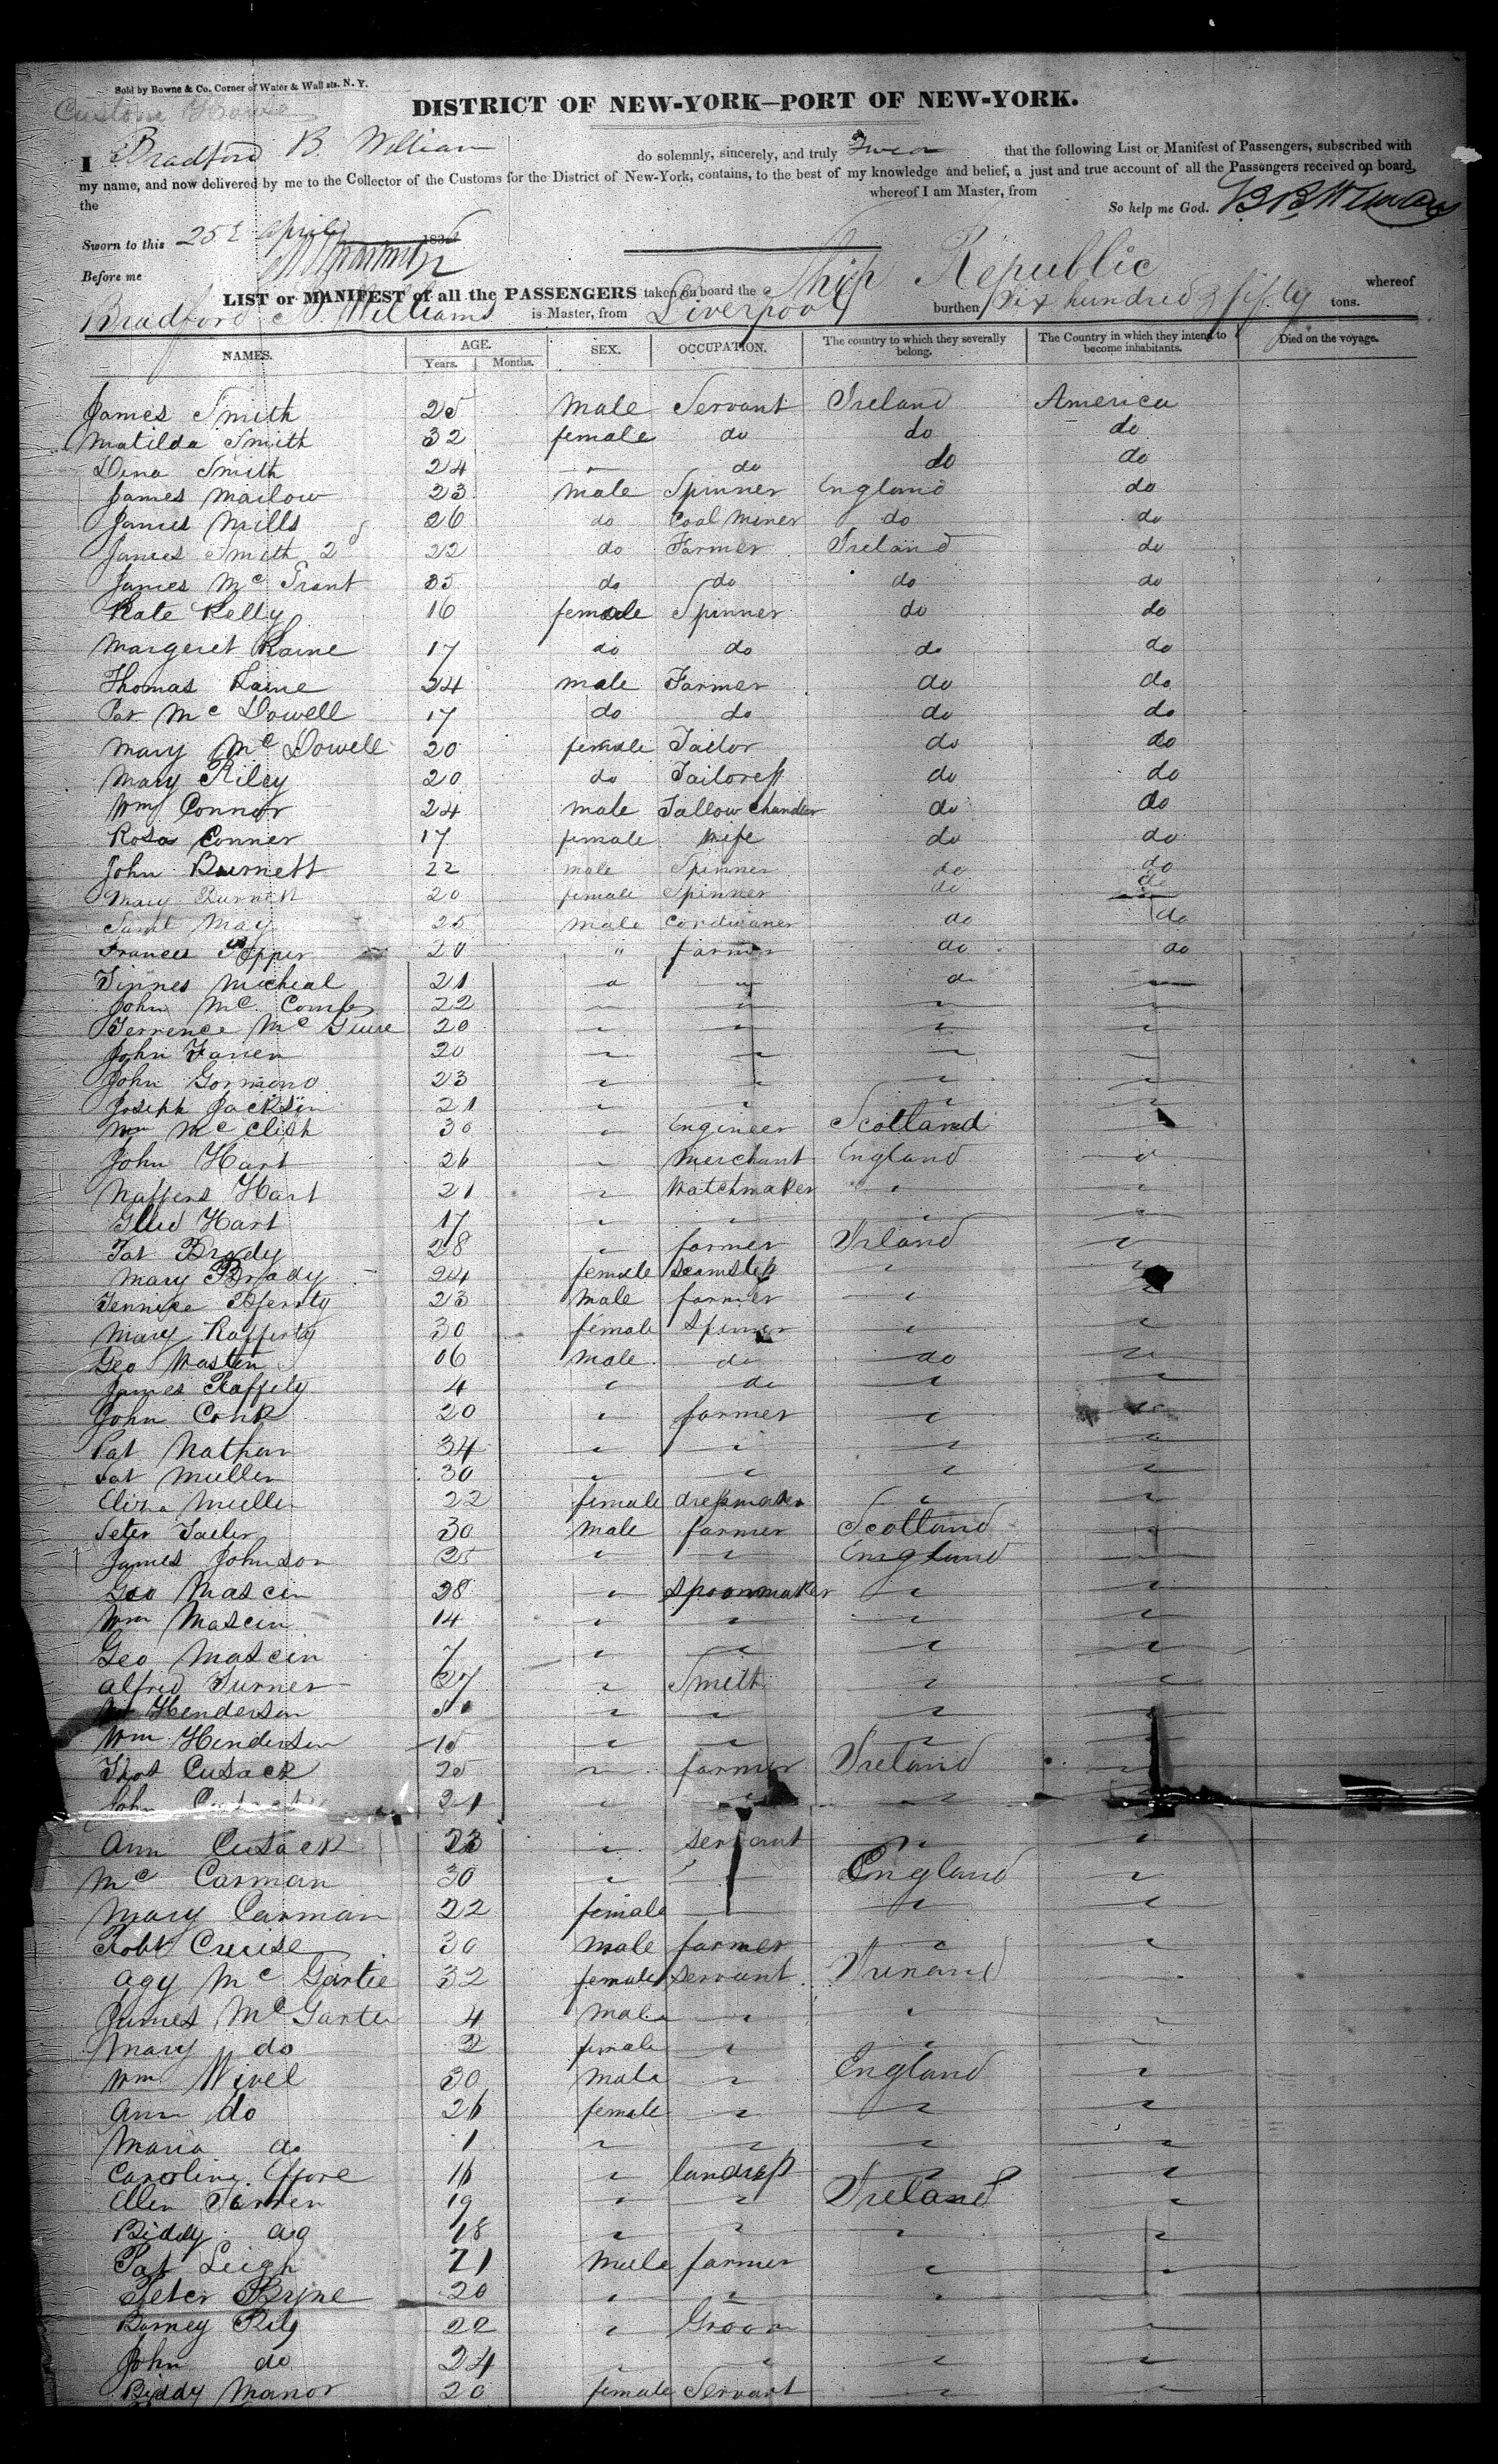 Sold by Bowne & Co. Corner of Water & Wall sts. N. Y.
Custom House
DISTRICT OF NEW-YORK—PORT OF NEW-YORK.
I Bradford B. William do solemnly, sincerely, and truly Swear that the following List or Manifest of Passengers, subscribed with
my name, and now delivered by me to the Collector of the Customs for the District of New-York, contains, to the best of my knowledge and belief, a just and true account of all the Passengers received on board,
the whereof I am Master, from
So help me God. B B Williams
Sworn to this 25 April 183
Before me
LIST or MANIFEST of all the PASSENGERS taken on board the Ship Republic whereof
Bradford B. Williams is Master, from Liverpool burthen Six hundred & fifty tons.
NAMES. AGE. Years. Months. SEX. OCCUPATION. The country to which they severally belong. The Country in which they intend to become inhabitants. Died on the voyage.
James Smith 25 Male Servant Ireland America
Matilda Smith 32 female do do do
Dena Smith 24 " do do do
James Marlow 23 Male Spinner England do
James Mills 26 do Coal Miner do do
James Smith 2d 22 do Farmer Ireland do
James Mc Grant 35 do do do do
Kate Kelly 16 female Spinner do do
Margeret Kaine 17 do do do do
Thomas Kaine 24 male Farmer do do
Pat Mc Dowell 17 do do do do
Mary Mc Dowell 20 female Tailor do do
Mary Riley 20 do Tailoress do do
Wm Connor 24 male Tallow Chandler do do
Rosa Conner 17 female Wife do do
John Burnett 22 male Spinner do do
Mary Burnett 20 female Spinner do do
Saml May 25 Male Cordwaner do do
Frances 20 " farmer do do
Tinnes Micheal 21 " " do "
John Mc Combs 22 " " " "
Terrence Mc Guire 20 " " " "
John Farren 20 " " " "
John Gormond 23 " " " "
Joseph Jackson 21 " " " "
Wm Mc Clish 30 " Engineer Scotland "
John Hart 26 " Merchant England "
Naffens Hart 21 " Watchmaker " "
Hart 17 " " " "
Pat Brady 28 " farmer Irland "
Mary Brady 24 female Seamstess " "
23 Male farmer " "
Mary Rafferty 30 female Spinner " "
Geo Wasten 06 Male do do "
James Raffety 4 " do " "
John Conk 20 " farmer " "
Pat Nathan 34 " " " "
Pat Mullen 30 " " " "
Eliza Mullen 22 female dressmaker " "
Peter Tailer 30 Male farmer Scotland "
James Johnson 25 " " England "
Geo Mascin 28 " Spoonmaker " "
Wm Mascin 14 " " " "
Geo Mascin 7 " " " "
Alfred Turner 27 " Smith " "
Henderson " " " "
Wm Henderson 15 " " " "
Thos Cusack 25 " farmer Ireland "
John 21 " " " "
Ann Cusack 23 " servant " "
Mc Carman 30 " " England "
Mary Carman 22 female " " "
Robt Cruise 30 male farmer " "
Agy Mc Gartie 32 female servant "
James Mc Garter 4 Male " " "
Mary do 2 female " " "
Wm Wivel 30 Male " England "
Ann do 26 female " " "
Maria do 1 " " " "
Caroline 16 " landress " "
Ellen 19 " " Ireland "
Biddy 18 " " " "
Pat Leigh 21 Male farmer " "
Peter Byrne 20 " " " "
Barney Rily 22 " Groom " "
John do 24 " " " "
Biddy Manor 20 female Servant " "